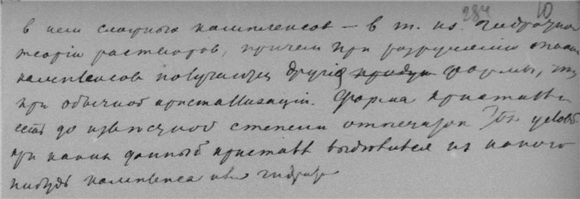 284 10
в нем сложных комплексов – в т. н. гидратной
теории растворов, причем при разрушении этих
комплексов получились другие формы, чем
при обычной кристаллизации. Форма кристалла
есть до известной степени отпечаток тех условий
при каких данный кристалл выделился из какого
нибудь комплекса или гидрата